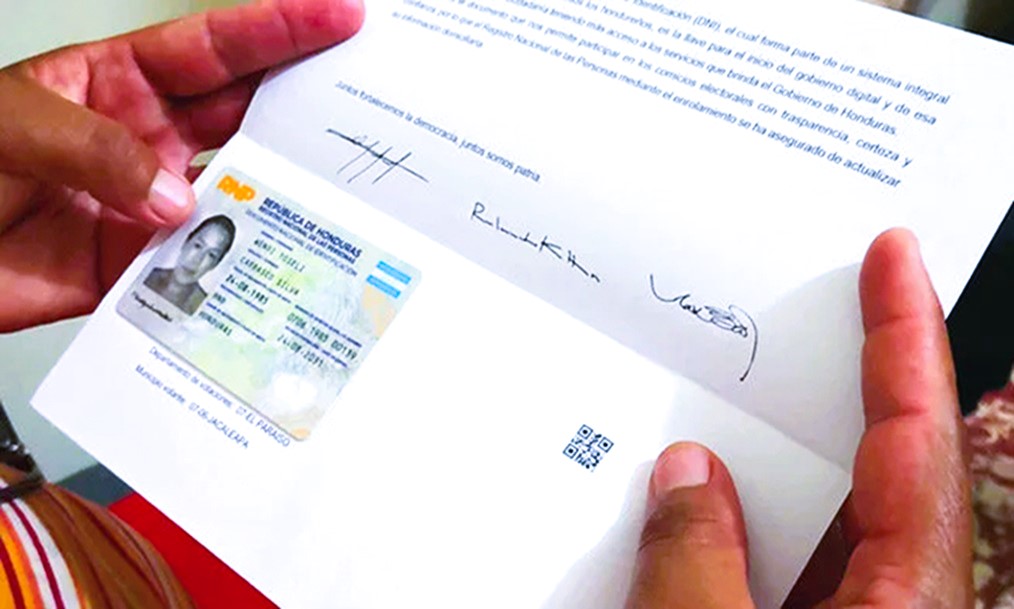 Identificación (DNI), el cual forma parte de un sistema integral
los hondureños, es la llave para el inicio del gobierno digital y de esa
ciudadanía teniendo más acceso a los servicios que brinda el Gobierno de Honduras.
documento que nos permite participar en los comicios electorales con trasparencia, certeza y
confianza, por lo que el Registro Nacional de las Personas mediante el enrolamiento se ha asegurado de actualizar
su información domiciliaria.
Juntos fortalecemos la democracia, juntos somos patria
RNP
REPÚBLICA DE HONDURAS
REGISTRO NACIONAL DE LAS PERSONAS
DOCUMENTO NACIONAL DE IDENTIFICACIÓN
CARRASCO SILVA
24-08-1985
HND
HONDURAS
0706 1985 00159
24-08-2031
Departamento de votaciones: 07-EL PARAISO
Municipio votante: 07-06-JACALEAPA